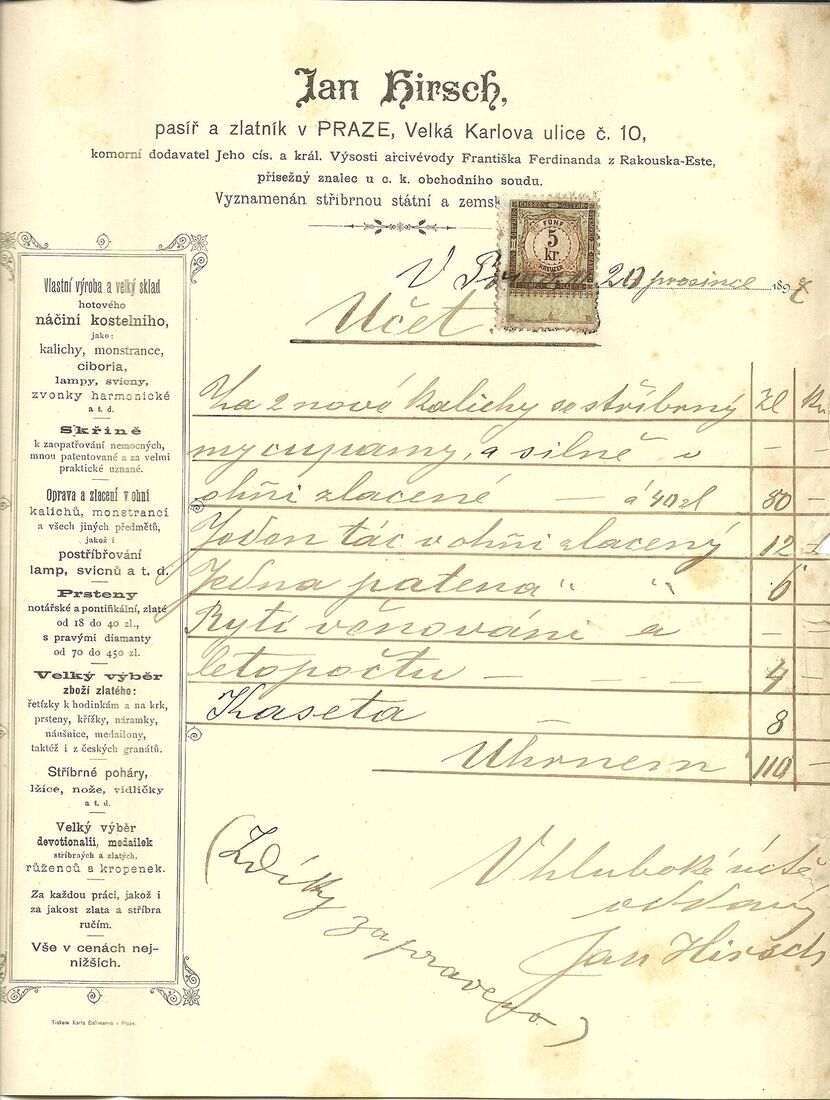 Jan Hirsch,
pasíř a zlatník v PRAZE, Velká Karlova ulice č. 10,
komorní dodavatel Jeho cís. a král. Výsosti arcivévody Františka Ferdinanda z Rakouska-Este,
přísežný znalec u c. k. obchodního soudu.
Vyznamenán stříbrnou státní a zemsk
FÜNF
5
kr.
KREUZER
V 20 prosince 189
Účet.
Vlastní výroba a velký sklad
hotového
náčiní kostelního,
jako:
kalichy, monstrance,
ciboria,
lampy, svícny,
zvonky harmonické
a t. d.
Skříně
k zaopatřování nemocných,
mnou patentované a za velmi
praktické uznané.
Oprava a zlacení v ohni
kalichů, monstrancí
a všech jiných předmětů,
jakož i
postříbřování
lamp, svícnů a t. d.
Prsteny
notářské a pontifikální, zlaté
od 18 do 40 zl.,
s pravými diamanty
od 70 do 450 zl.
Velký výběr
zboží zlatého:
řetízky k hodinkám a na krk,
prsteny, křížky, náramky,
náušnice, medailony,
taktéž i z českých granátů.
Stříbrné poháry,
lžíce, nože, vidličky
a t. d.
Velký výběr
devotionalií, medailek
stříbrných a zlatých,
růženců a kropenek.
Za každou práci, jakož i
za jakost zlata a stříbra
ručím.
Vše v cenách nej-
nižších.
Za 2 nové kalichy se stříbrný Zl Kr
my cupamy, a silně v — —
ohni zlacené — á 40 zl 80 —
Jeden tác v ohni zlacený 12 —
Jedna patena " " 6
Rytí věnování a — —
letopočtu — — — 4 —
Kaseta — 8
Uhrnem 110 —
V hluboké úctě
oddaný
Jan Hirsch
(Zdíky zapraveno)